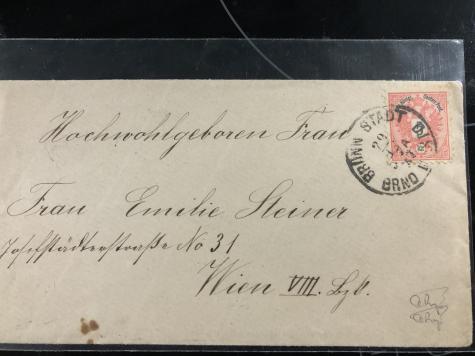 Hochwohlgeboren Frau
Frau Emilie Steiner
Josefstädterstraße No 31
Wien VIII. Bzk.
BRÜNN STADT
BRNO